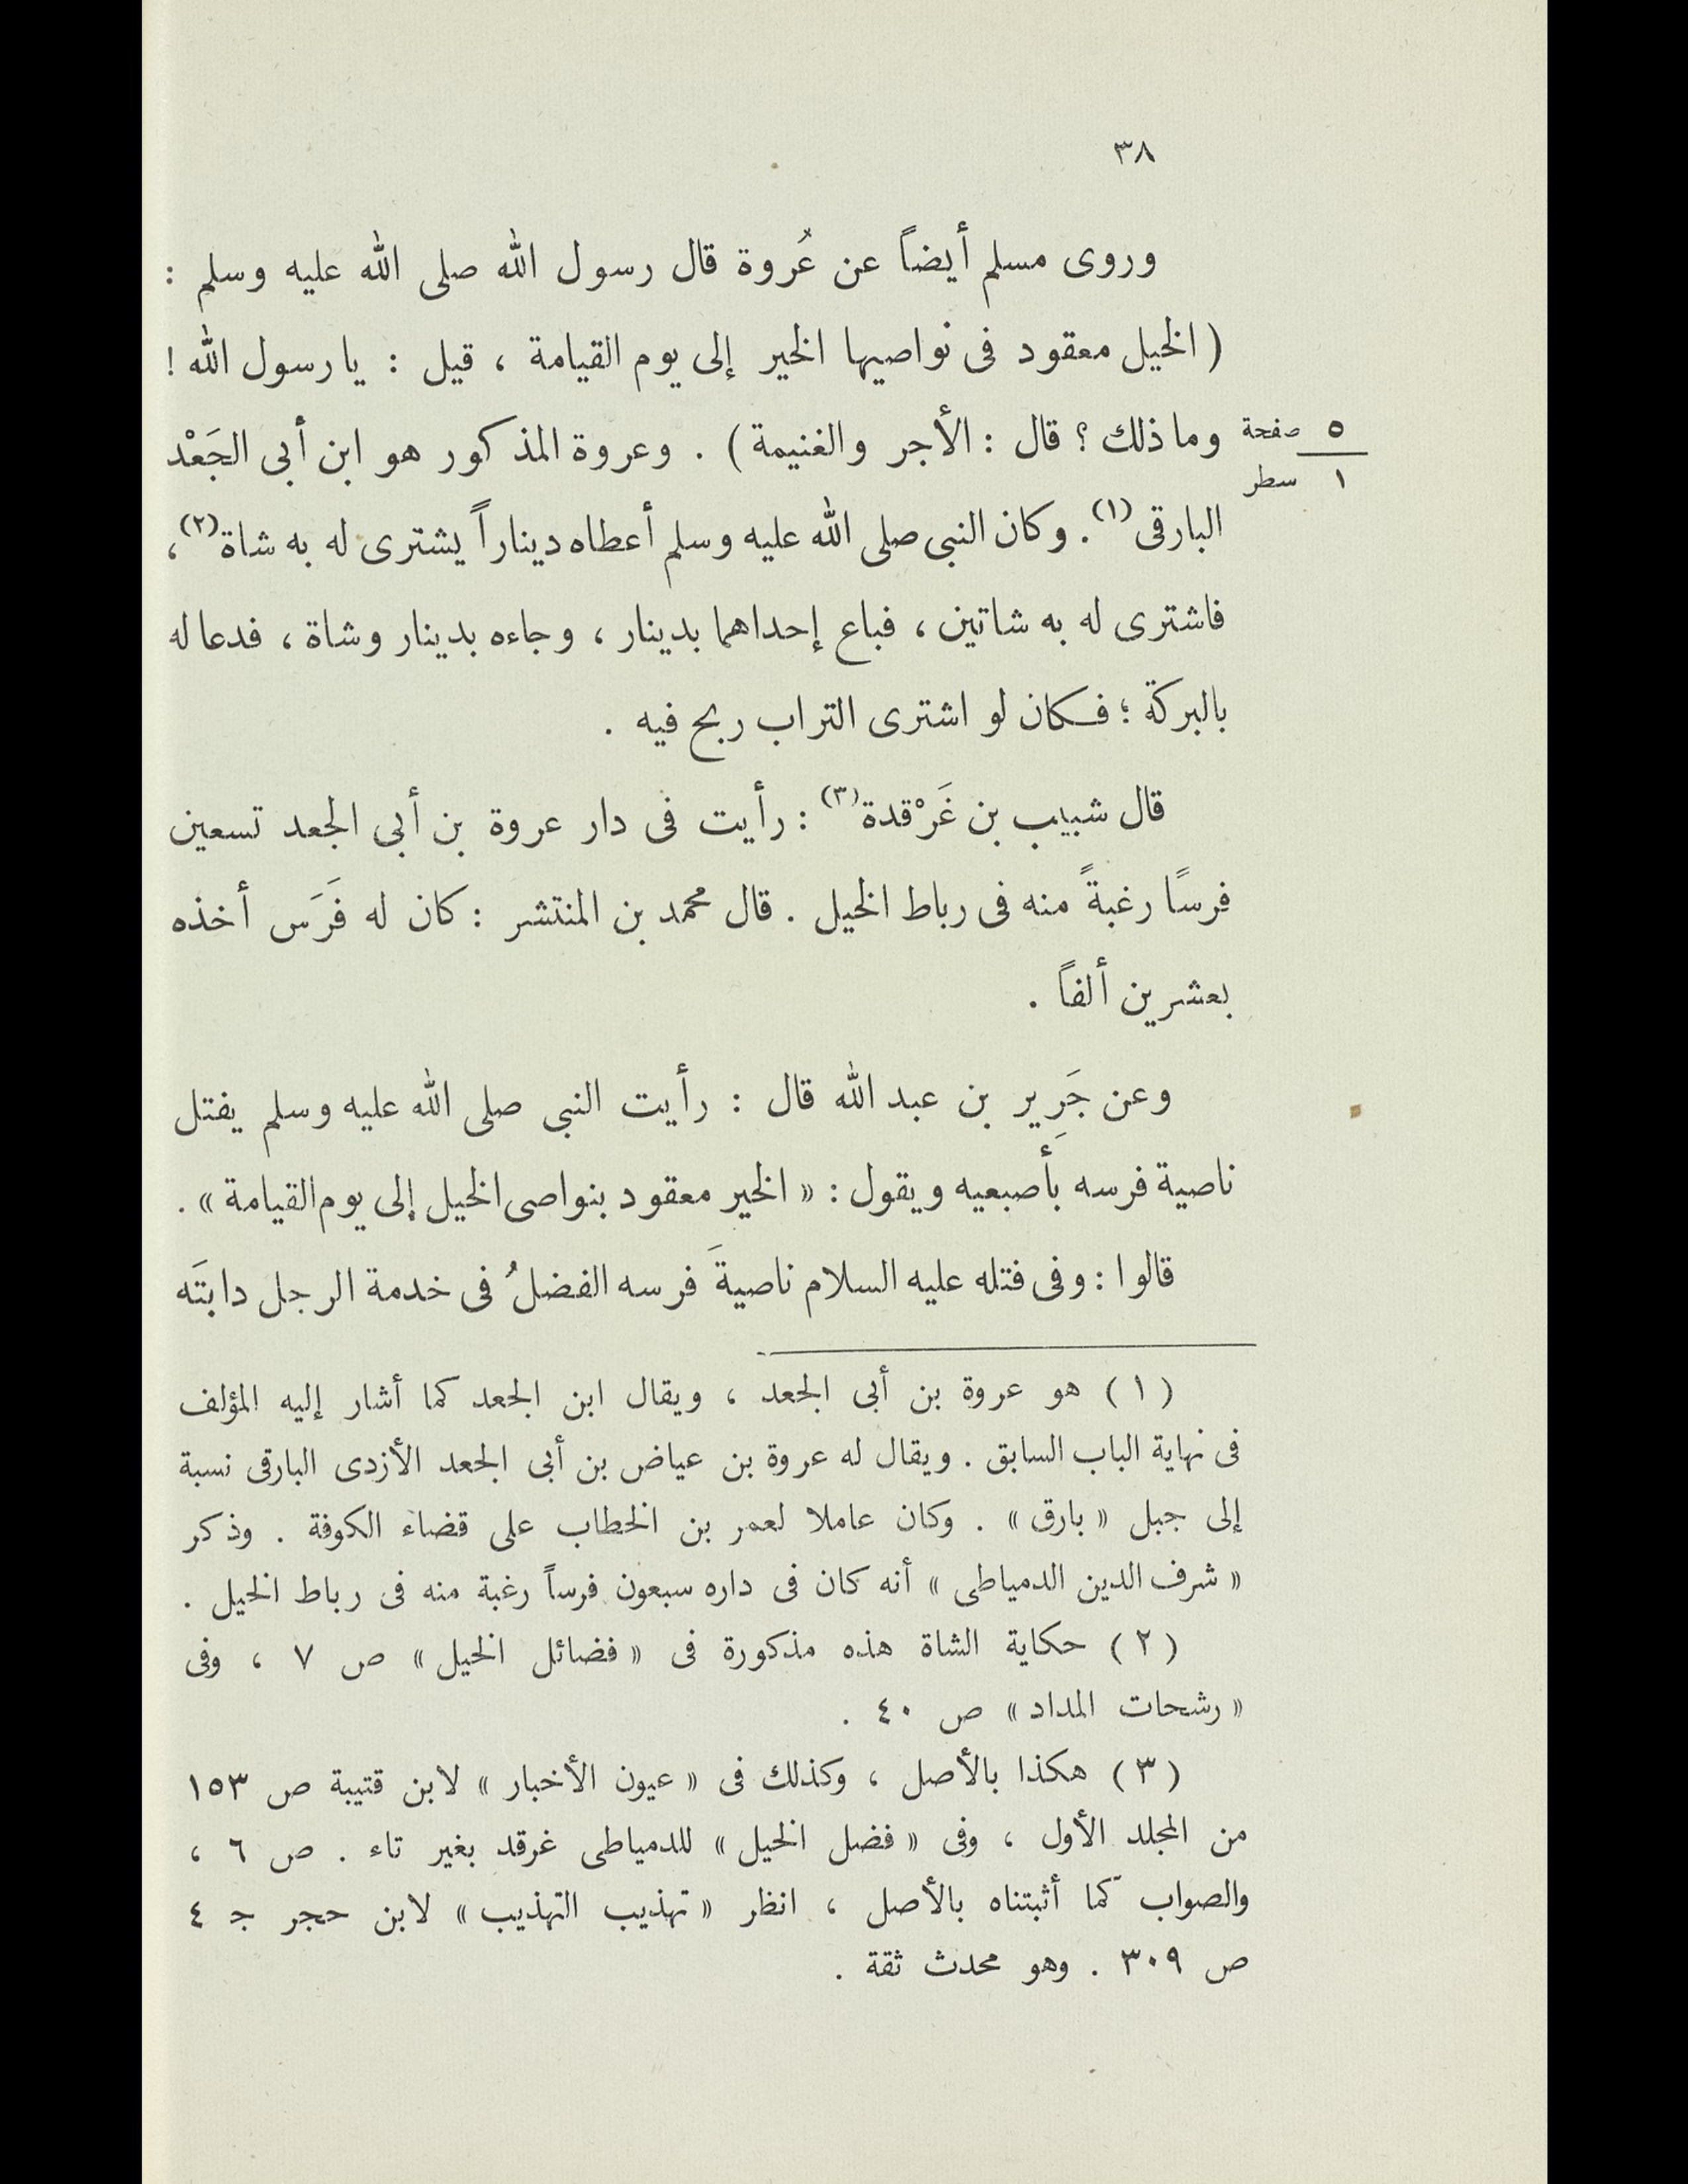 ٣٨
وروى مسلم أيضاً عن عُروة قال رسول الله صلى الله عليه وسلم :
( الخيل معقود فى نواصيها الخير إلى يوم القيامة ، قيل : يا رسول الله !
وما ذلك ؟ قال : الأجر والغنيمة ) . وعروة المذكور هو ابن أبى الجَعْد
صفحة ٥
سطر ١
البارقى (١) . وكان النبى صلى الله عليه وسلم أعطاه ديناراً يشترى له به شاة (٢) ،
فاشترى له به شاتين ، فباع إحداهما بدينار ، وجاءه بدينار وشاة ، فدعا له
بالبركة ؛ فكان لو اشترى التراب ربح فيه .
قال شبيب بن غَرْقدة (٣) : رأيت فى دار عروة بن أبى الجعد تسعين
فرسًا رغبةً منه فى رباط الخيل . قال محمد بن المنتشر : كان له فَرَس أخذه
بعشرين ألفاً .
وعن جَرِير بن عبد الله قال : رأيت النبى صلى الله عليه وسلم يفتل
ناصية فرسه بأَصبعيه ويقول : « الخير معقود بنواصى الخيل إلى يوم القيامة » .
قالوا : وفى فتله عليه السلام ناصيةَ فرسه الفضلُ فى خدمة الرجل دابتَه
( ١ ) هو عروة بن أبى الجعد ، ويقال ابن الجعد كما أشار إليه المؤلف
فى نهاية الباب السابق . ويقال له عروة بن عياض بن أبى الجعد الأزدى البارقى نسبة
إلى جبل « بارق » . وكان عاملا لعمر بن الخطاب على قضاء الكوفة . وذكر
« شرف الدين الدمياطى » أنه كان فى داره سبعون فرساً رغبة منه فى رباط الخيل .
( ٢ ) حكاية الشاة هذه مذكورة فى « فضائل الخيل » ص ٧ ، وفى
« رشحات المداد » ص ٤٠ .
( ٣ ) هكذا بالأصل ، وكذلك فى « عيون الأخبار » لابن قتيبة ص ١٥٣
من المجلد الأول ، وفى « فضل الخيل » للدمياطى غرقد بغير تاء . ص ٦ ،
والصواب كما أثبتناه بالأصل ، انظر « تهذيب التهذيب » لابن حجر ج ٤
ص ٣٠٩ . وهو محدث ثقة .